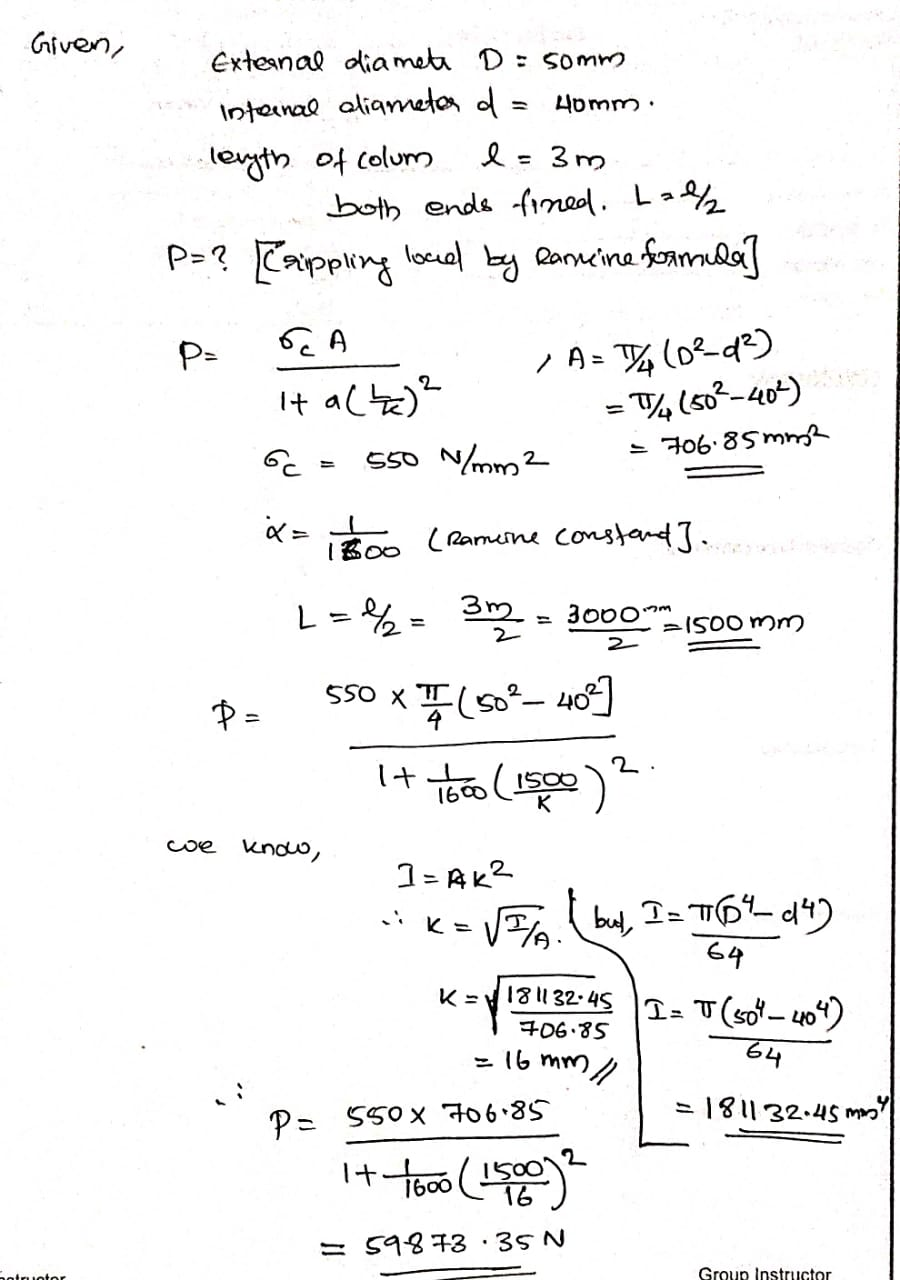 Given,
External diamete D = 50mm
Internal diameter d = 40mm.
length of colum l = 3m
both ends fixed. L = l/2
P=? [Crippling load by Rankine formula]
P= σc A / 1+ a(L/k)² , A = π/4 (D²-d²)
= π/4 (50²-40²)
σc = 550 N/mm2 = 706.85 mm²
α = 1/1600 (Rankine constant].
L = l/2 = 3m/2 = 3000mm/2 = 1500 mm
P = 550 x π/4 (50² - 40²] / 1+ 1/1600 (1500/K)² .
we know,
I = AK²
∴ K = √I/A. but, I = π(D⁴-d⁴)/64
K = √181132.45/706.85 I = π(50⁴-40⁴)/64
= 16 mm // = 181132.45 mm⁴
∴ P = 550 x 706.85 / 1+ 1/1600 (1500/16)²
= 59873.35 N
Group Instructor